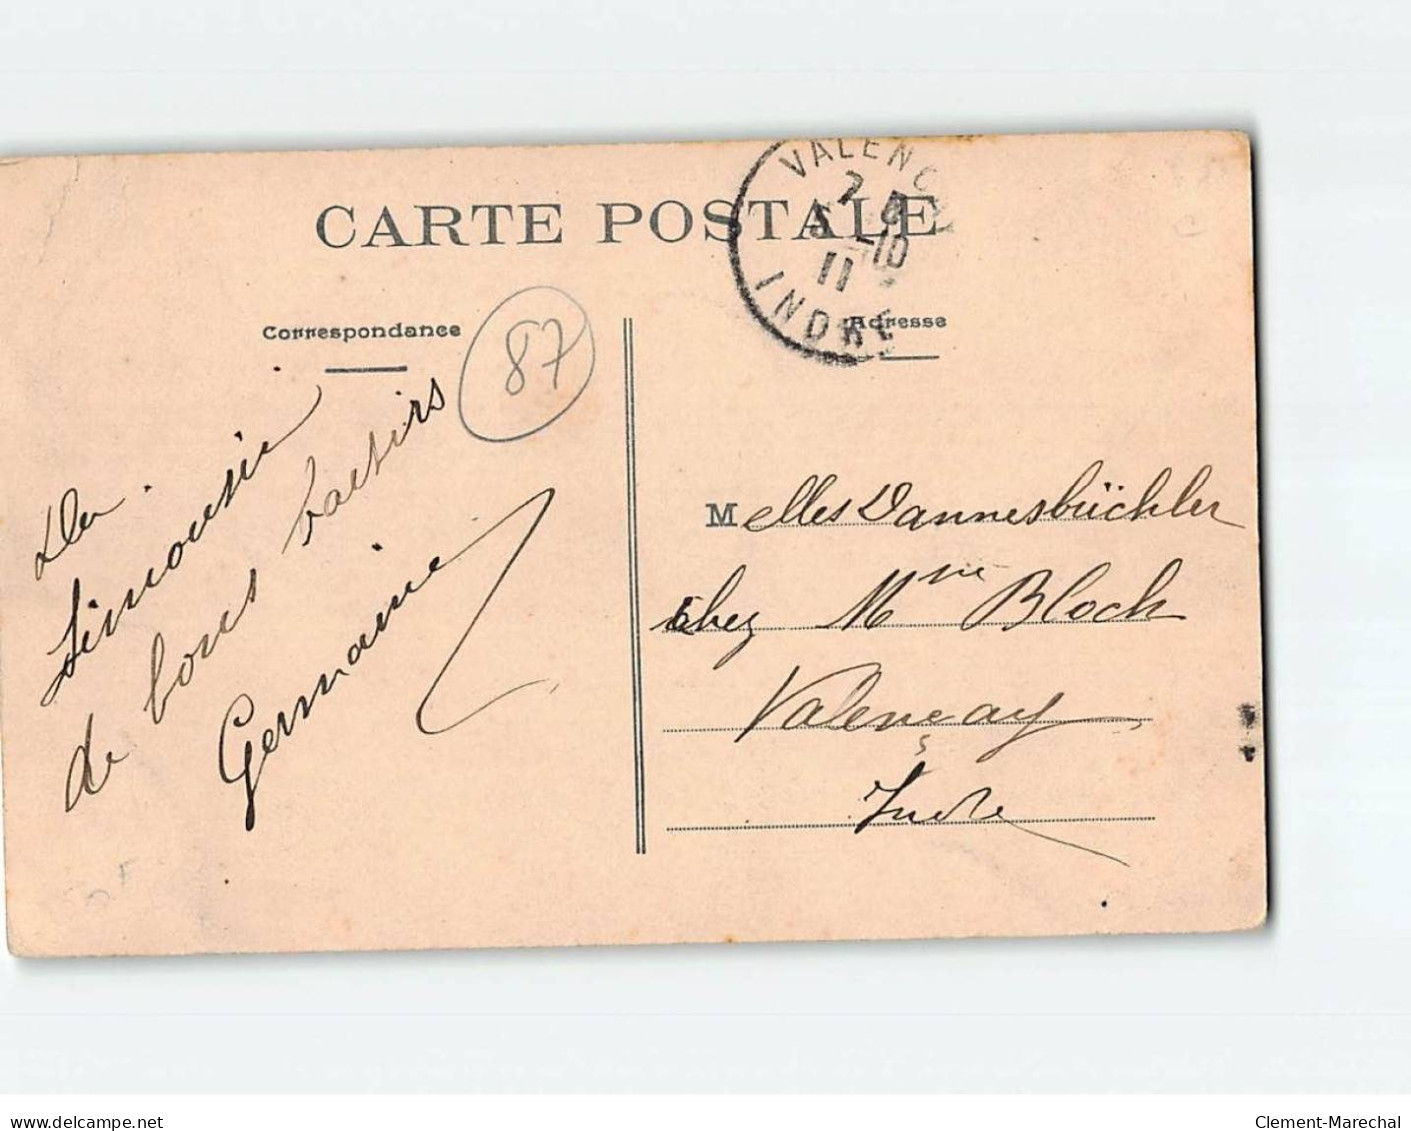 CARTE POSTALE
VALENCAY
7 B
5 -10
11
INDRE
Correspondance
Adresse
87
Du
Limousin
de bons baisers
Germaine
Melles Dannesbüchler
chez Mme Bloch
Valençay
Indre
www.delcampe.net
Clement-Marechal